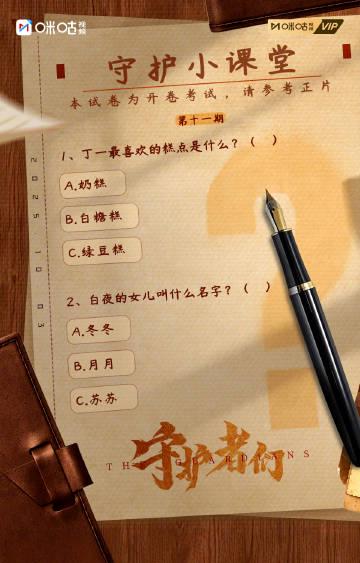 咪咕视频
咪咕视频 VIP
守护小课堂
本试卷为开卷考试，请参考正片
第十一期
1、丁一最喜欢的糕点是什么？（ ）
A.奶糕
B.白糖糕
C.绿豆糕
2、白夜的女儿叫什么名字？（ ）
A.冬冬
B.月月
C.苏苏
2025 10 03
守护者们
THE GUARDIANS